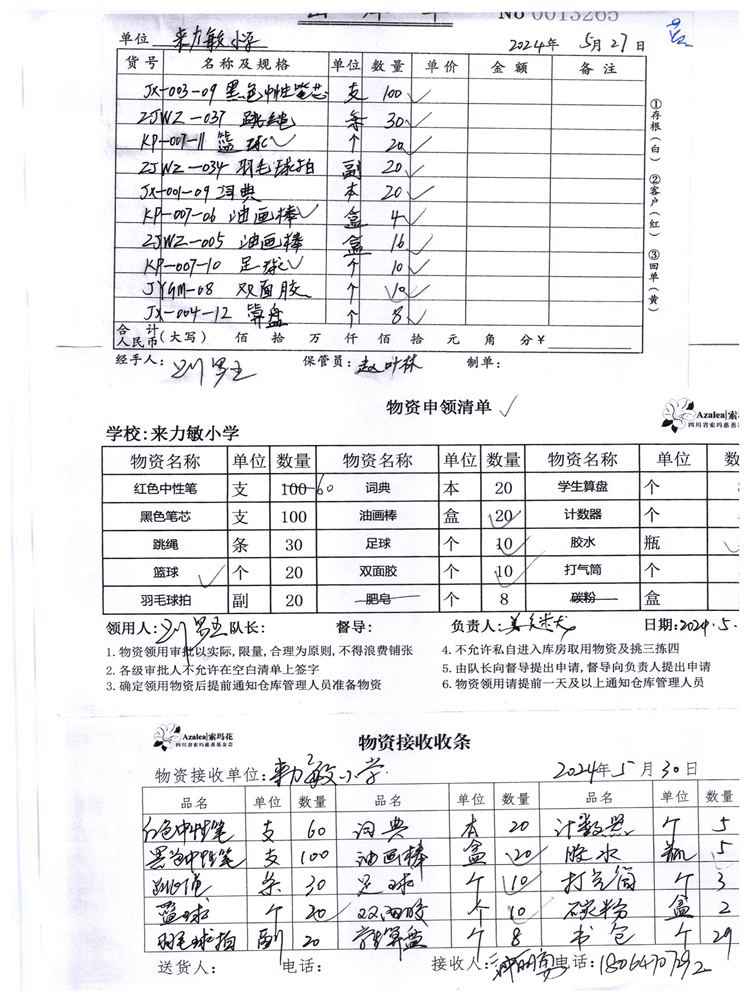 No 0013265
单位 来力敏小学 2024年 5月27日
货号 名称及规格 单位 数量 单价 金额 备注
JX-003-09 黑色中性笔芯 支 100 ✓
ZJWZ-037 跳绳 条 30 ✓
KP-007-11 篮球 个 20 ✓
ZJWZ-034 羽毛球拍 副 20 ✓
JX-001-09 词典 本 20 ✓
KP-007-06 油画棒 盒 4 ✓
ZJWZ-005 油画棒 盒 16 ✓
KP-007-10 足球 个 10 ✓
JYGM-08 双面胶 个 10 ✓
JX-004-12 算盘 个 8 ✓
合计人民币(大写) 佰 拾 万 仟 佰 拾 元 角 分¥
经手人: 保管员: 赵叶林 制单:
①存根(白) ②客户(红) ③回单(黄)
物资申领清单 ✓
Azalea|索玛
四川省索玛慈善基
学校:来力敏小学
物资名称 单位 数量 物资名称 单位 数量 物资名称 单位 数
红色中性笔 支 100 60 词典 本 20 学生算盘 个
黑色笔芯 支 100 油画棒 盒 20 计数器 个
跳绳 条 30 足球 个 10 胶水 瓶
篮球 ✓ 个 20 双面胶 个 10 打气筒 个
羽毛球拍 副 20 肥皂 个 8 碳粉 盒
领用人: 队长: 督导: 负责人: 日期:2024.5.
1. 物资领用审批以实际,限量,合理为原则,不得浪费铺张 4. 不允许私自进入库房取用物资及挑三拣四
2. 各级审批人不允许在空白清单上签字 5. 由队长向督导提出申请,督导向负责人提出申请
3. 确定领用物资后提前通知仓库管理人员准备物资 6. 物资领用请提前一天及以上通知仓库管理人员
Azalea|索玛花
四川省索玛慈善基金会
物资接收收条
物资接收单位:来力敏小学 2024年5月30日
品名 单位 数量 品名 单位 数量 品名 单位 数量
红色中性笔 支 60 词典 本 20 计数器 个 5
黑色中性笔 支 100 油画棒 盒 20 胶水 瓶 5
跳绳 条 30 足球 个 10 打气筒 个 3
篮球 个 20 双面胶 个 10 碳粉 盒 2
羽毛球拍 副 20 算盘 个 8 书包 个 29
送货人: 电话: 接收人: 电话: